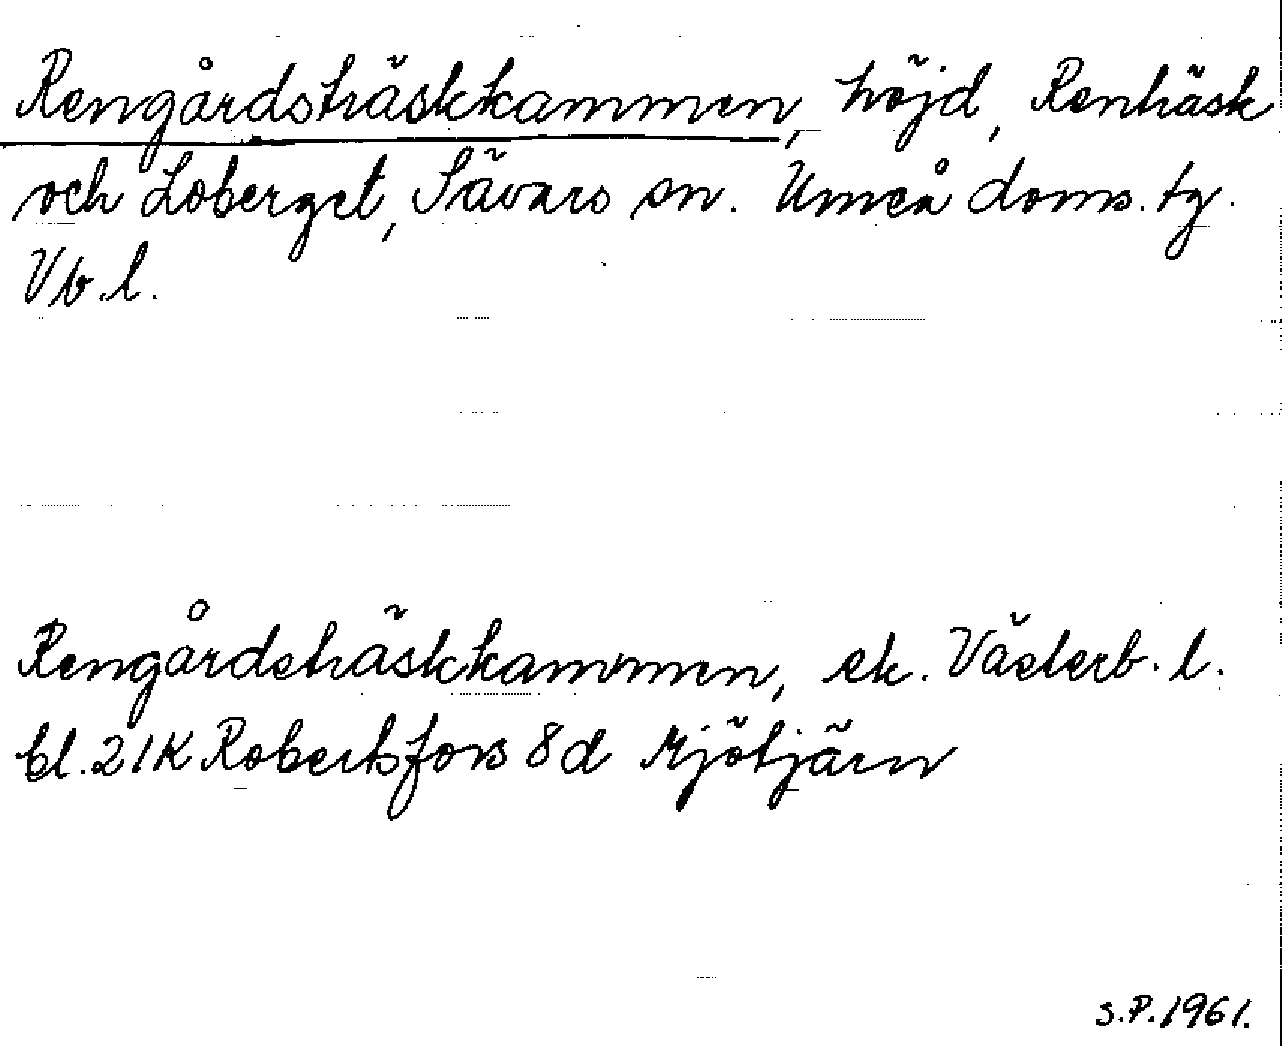 Rengårdsträskkammen, höjd, Renträsk
och Loberget, Sävars sn. Umeå doms. tg.
Vb. l.
Rengårdsträskkammen, ek. Västerb. l.
bl. 21K Robertsfors 8d Mjötjärn
S.P. 1961.